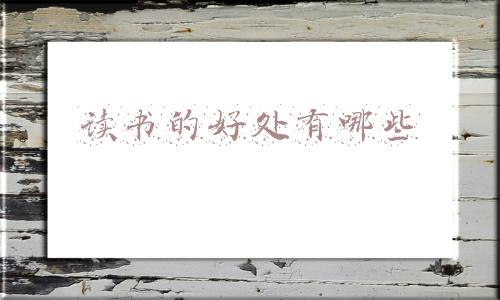 读书的好处有哪些